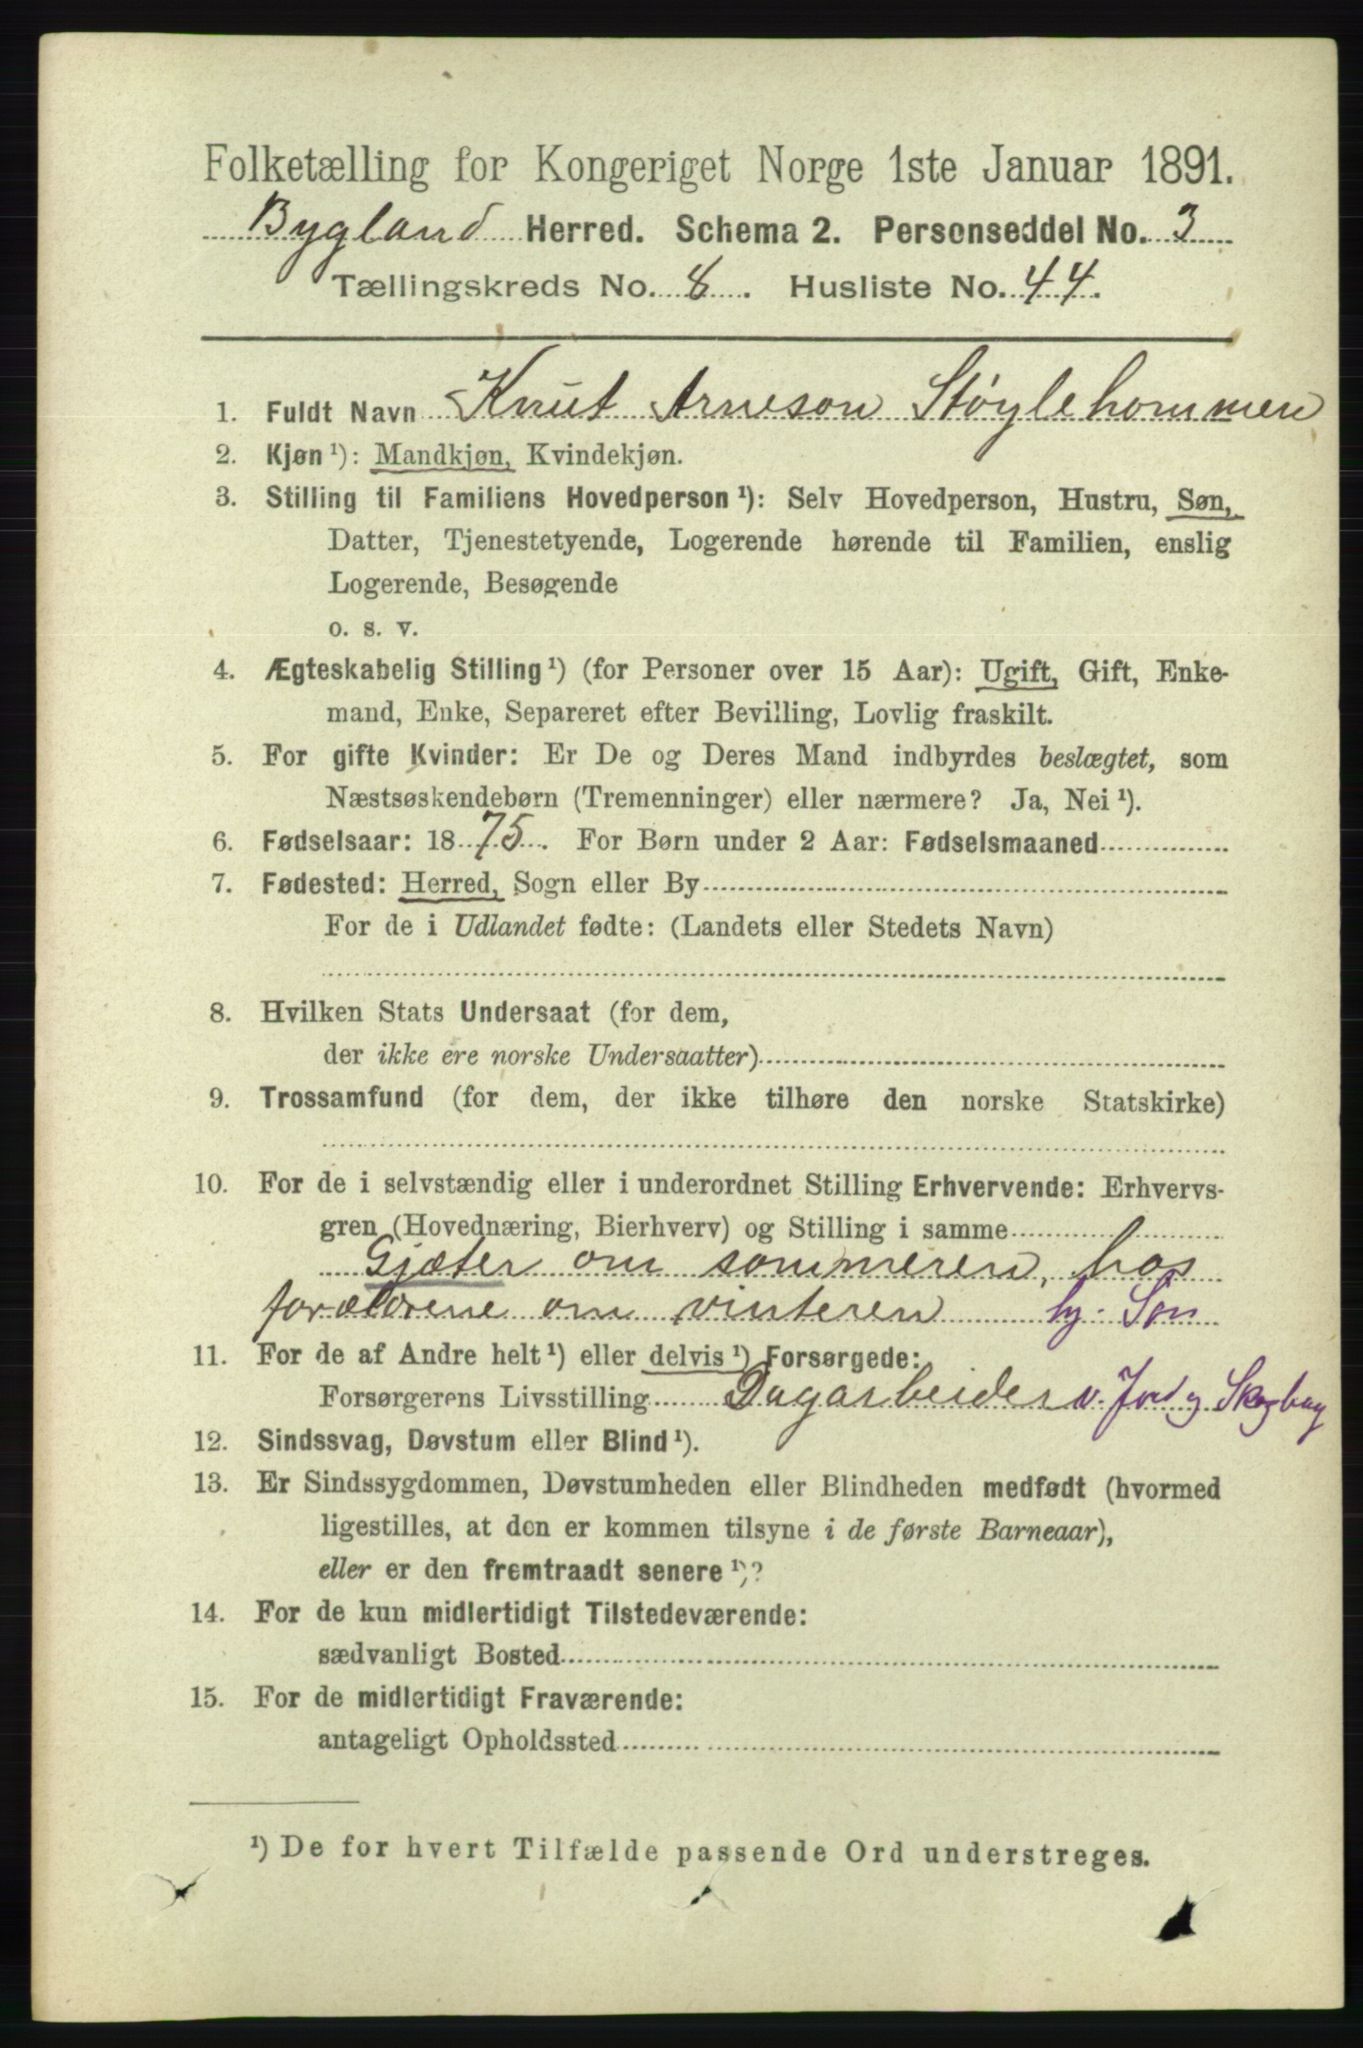 Folketælling for Kongeriget Norge 1ste Januar 1891.
Bygland Herred. Schema 2. Personseddel No. 3
Tællingskreds No. 8. Husliste No. 44.
1. Fuldt Navn Knut Arneson Støylehommen
2. Kjøn ¹): Mandkjøn, Kvindekjøn.
3. Stilling til Familiens Hovedperson ¹): Selv Hovedperson, Hustru, Søn,
Datter, Tjenestetyende, Logerende hørende til Familien, enslig
Logerende, Besøgende
o. s. v.
4. Ægteskabelig Stilling ¹) (for Personer over 15 Aar): Ugift, Gift, Enke-
mand, Enke, Separeret efter Bevilling, Lovlig fraskilt.
5. For gifte Kvinder: Er De og Deres Mand indbyrdes beslægtet, som
Næstsøskendebørn (Tremenninger) eller nærmere? Ja, Nei ¹).
6. Fødselsaar: 1875. For Børn under 2 Aar: Fødselsmaaned
7. Fødested: Herred, Sogn eller By
For de i Udlandet fødte: (Landets eller Stedets Navn)
8. Hvilken Stats Undersaat (for dem,
der ikke ere norske Undersaatter)
9. Trossamfund (for dem, der ikke tilhøre den norske Statskirke)
10. For de i selvstændig eller i underordnet Stilling Erhvervende: Erhvervs-
gren (Hovednæring, Bierhverv) og Stilling i samme
Gjæter om sommeren, hos
forældrene om vinteren hj. Søn
11. For de af Andre helt ¹) eller delvis ¹) Forsørgede:
Forsørgerens Livsstilling Dagarbeider v. Jord og Skogbrug
12. Sindssvag, Døvstum eller Blind ¹).
13. Er Sindssygdommen, Døvstumheden eller Blindheden medfødt (hvormed
ligestilles, at den er kommen tilsyne i de første Barneaar),
eller er den fremtraadt senere ¹)?
14. For de kun midlertidigt Tilstedeværende:
sædvanligt Bosted
15. For de midlertidigt Fraværende:
antageligt Opholdssted
¹) De for hvert Tilfælde passende Ord understreges.